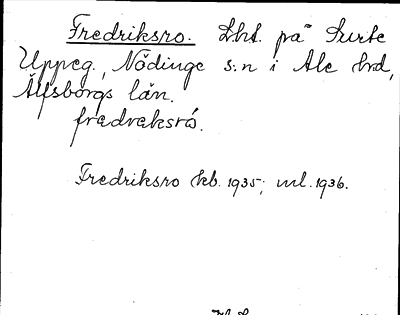 Fredriksro. Lht. på Surte
Uppeg., Nödinge s:n i Ale hrd,
Älfsborgs län.
fredreksrö.
Fredriksro kb. 1935; ml. 1936.